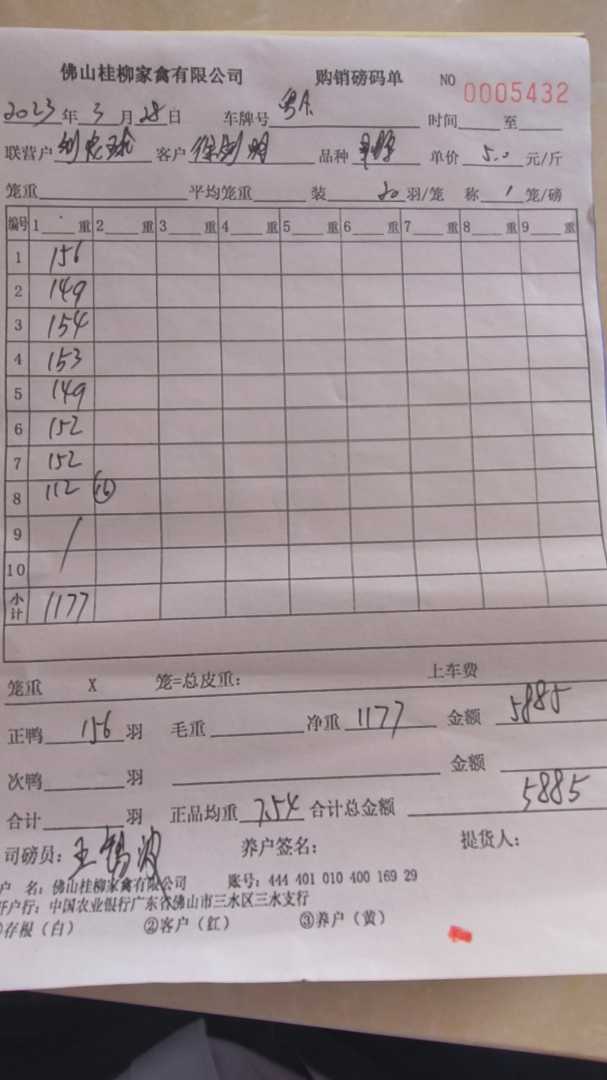 佛山桂柳家禽有限公司 购销磅码单 NO 0005432
2023年3月28日 车牌号 粤A 时间 至
联营户 客户 品种 单价 5.0 元/斤
笼重 平均笼重 装 20 羽/笼 称 1 笼/磅
编号 1 重 2 重 3 重 4 重 5 重 6 重 7 重 8 重 9 重
1 156
2 149
3 154
4 153
5 149
6 152
7 152
8 112 16
9 /
10
小计 1177
笼重 X 笼=总皮重: 上车费
正鸭 156 羽 毛重 净重 1177 金额 5885
次鸭 羽 金额
合计 羽 正品均重 7.54 合计总金额 5885
司磅员: 王锡波 养户签名: 提货人:
户 名: 佛山桂柳家禽有限公司 账号: 444 401 010 400 169 29
开户行: 中国农业银行广东省佛山市三水区三水支行
①存根(白) ②客户(红) ③养户(黄)